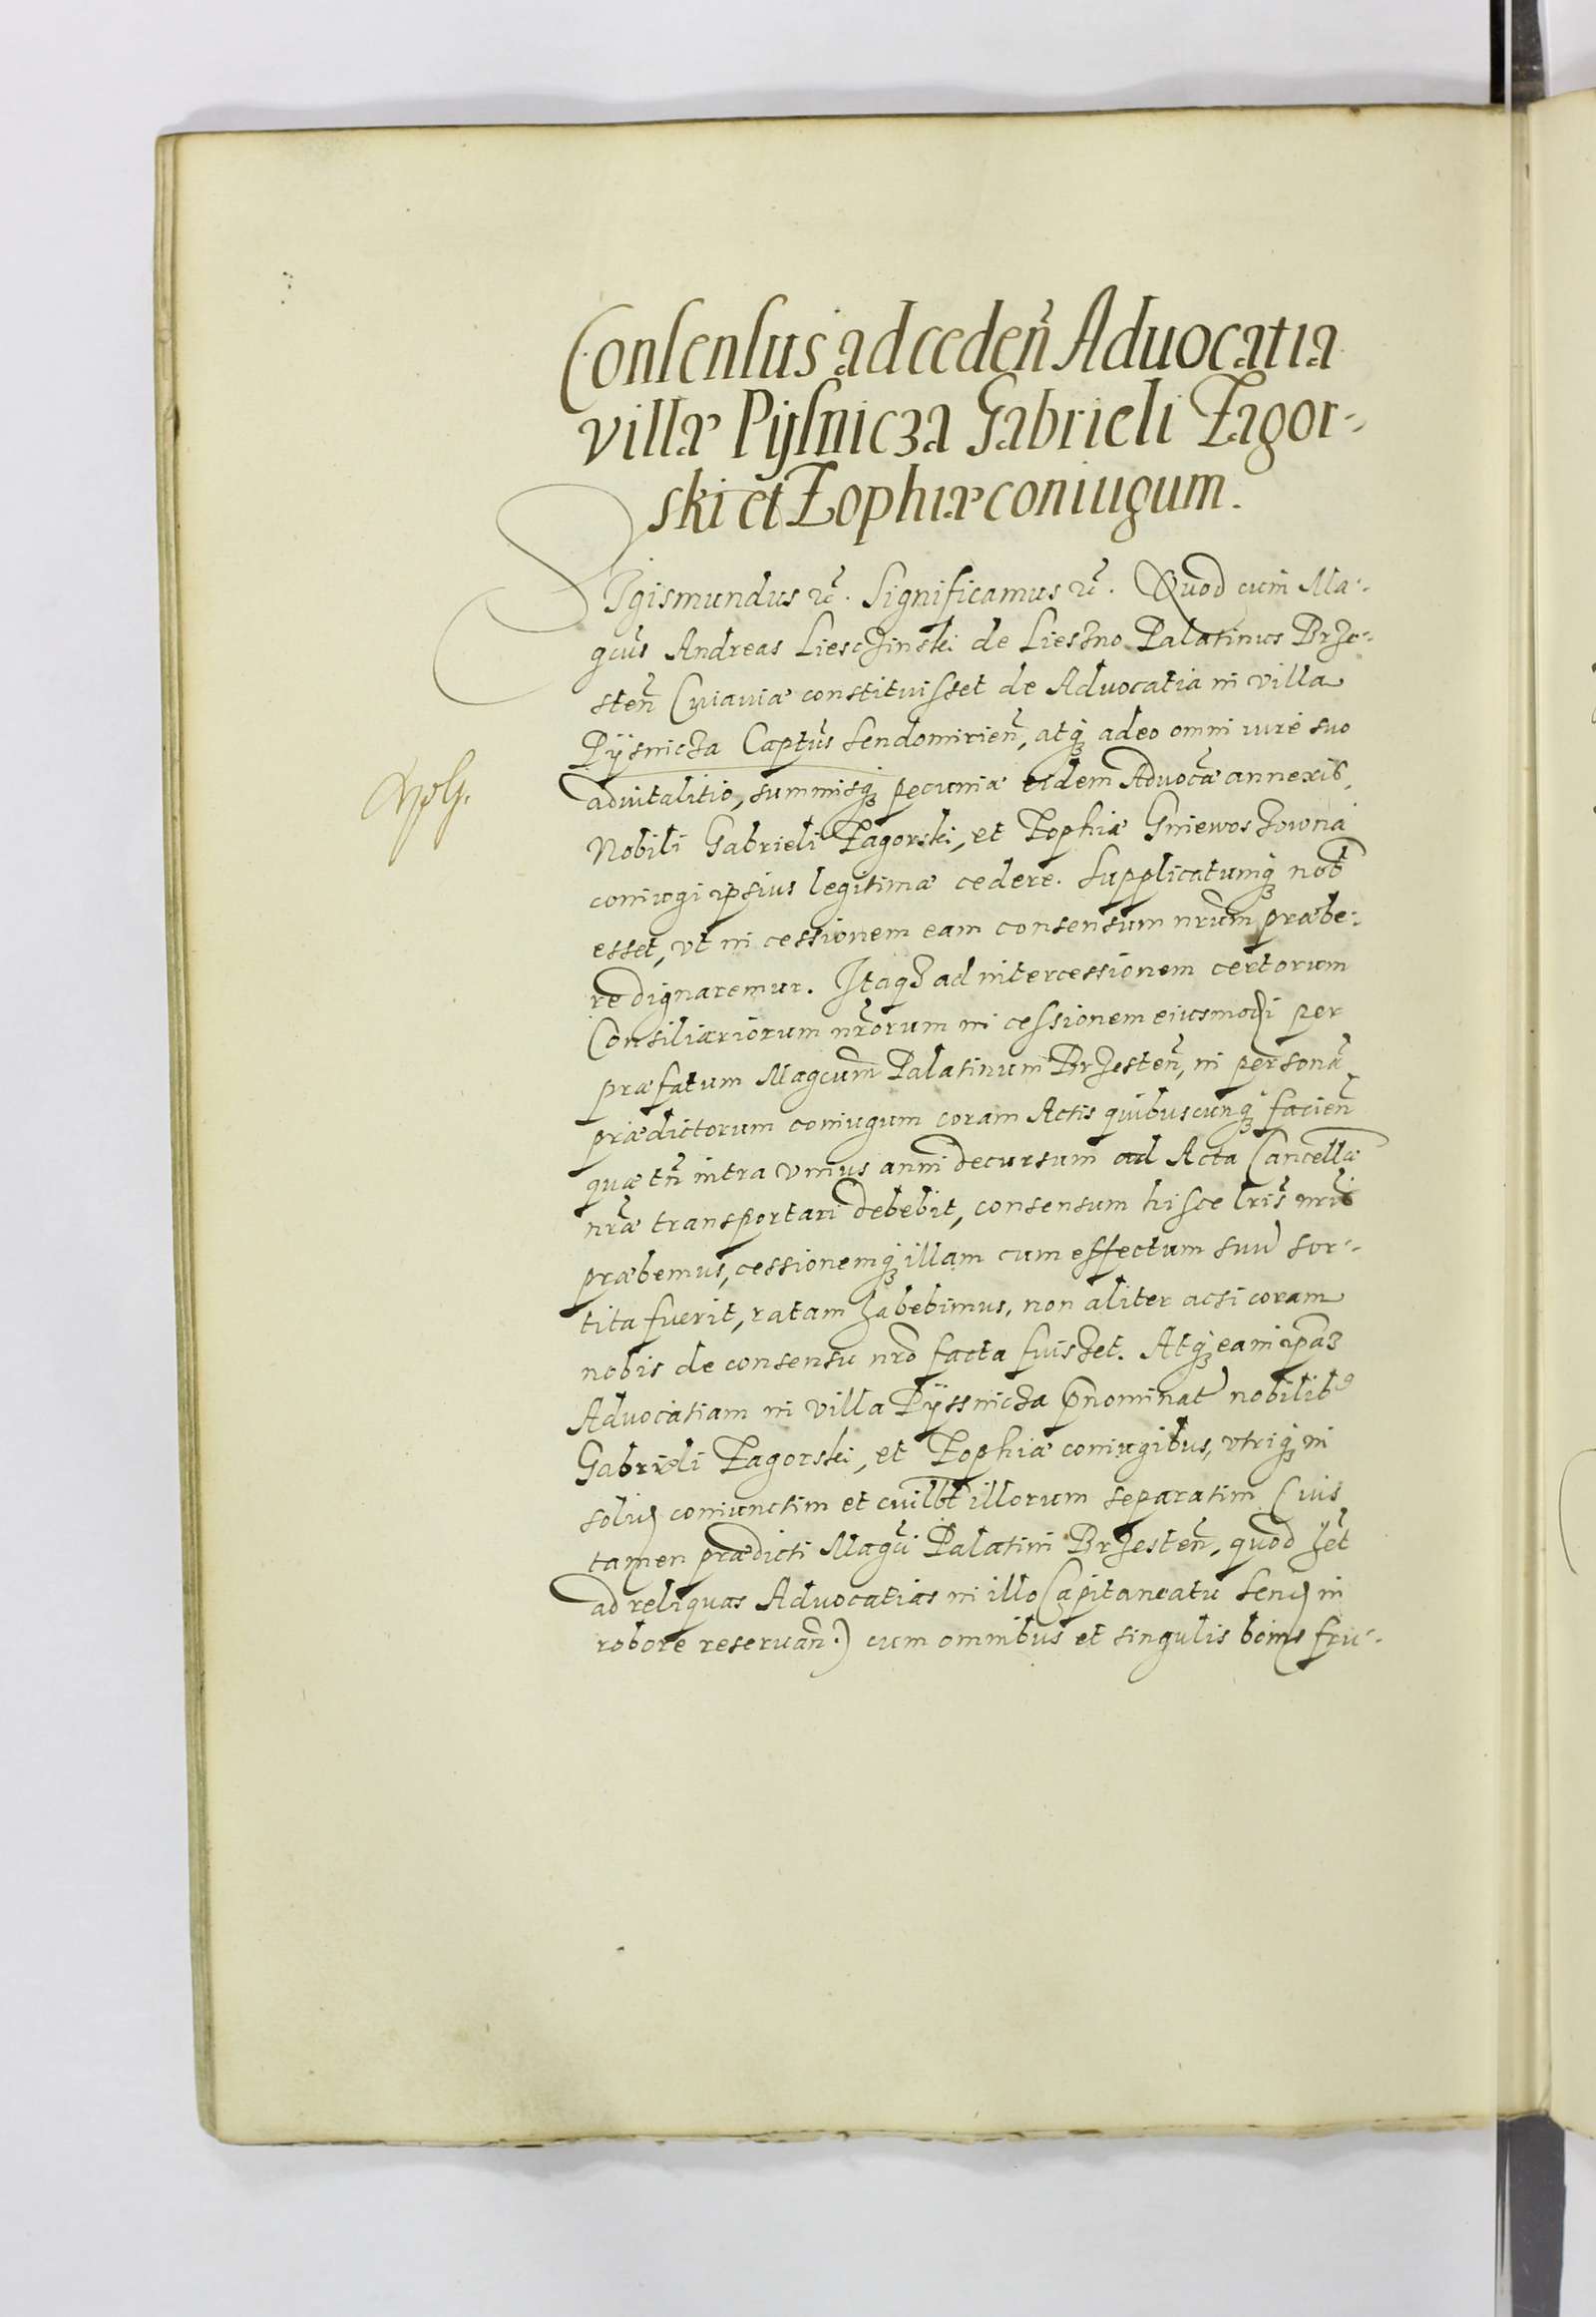 Consensus ad ceden̄ Aduocatia
villæ Pÿsnicza Gabrieli Zagor-
ski et Zophiæ coniugum.
Sigismundus &c̃. Significamus &c̃. Quod cum Ma-
gcus̃ Andreas Liesczinski de Lieszno Palatinus Brze-
sten̄ Cuiauiæ constituisset de Aduocatia in villa
Pÿsnicza Captus̃ Sendomirien̄, atq̃ adeo omni iure suo
aduitalitio, summisq̃ pecuniæ eidem Aduocæ̃ annexis,
Nobili Gabrieli Zagorski, et Zophiæ Gniewoszowna
coniugi ipsius legitimæ cedere. Supplicatumq̃ nob̃
esset, vt in cessionem eam consensum nrũm præbe-
re dignaremur. Itaq3 ad intercessionem certorum
Consiliariorum nrõrum in cessionem eiusmodi per
præfatum Magcum̃ Palatinum Brzesten̄, in personã
prædictorum coniugum coram Actis quibuscunq̃ facien̄
quæ tñ intra vnius anni decursum ad Acta Cancellæ̃
nræ̃ transportari debebit, consensum hisce lris̃ nris̃
præbemus, cessionemq̃ illam cum effectum suũ sor-
tita fuerit, ratam habebimus, non aliter acsi coram
nobis de consensu nrõ facta fuiszet. Atq̃ eam ipãz
Aduocatiam in villa Pÿssnicza p̃nominat̃ nobilib9
Gabrieli Zagorski, et Zophiæ coniugibus, vtriq̃ in
solid coniunctim et cuilbt̃ illorum separatim (iuis
tamen prædicti Magcĩ Palatini Brzesten̄, quod het̃
ad reliquas Aduocatias in illo Capitaneatu Send in
robore reseruan̄.) cum omnibus et singulis bonis fru-